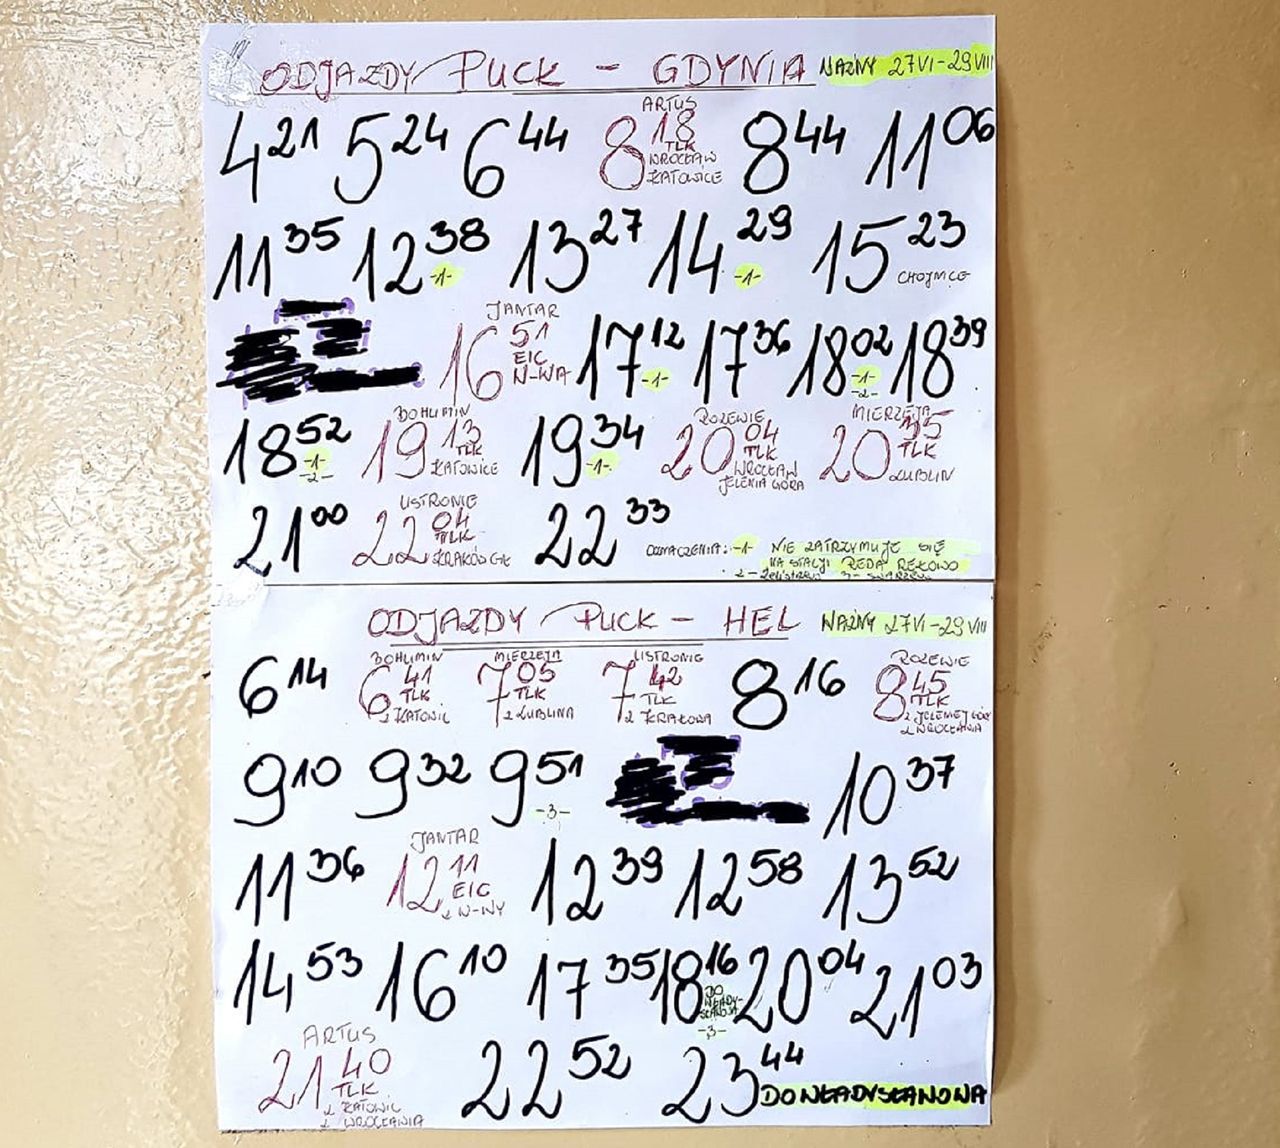 ODJAZDY PUCK - GDYNIA WAŻNY 27VI-29VIII
4 21 5 24 6 44 8 18 ARTUS TLK WROCŁAW KATOWICE 8 44 11 06
11 35 12 38 -1- 13 27 14 29 -1- 15 23 CHOJNICE
16 51 JANTAR EIC W-WA 17 12 -1- 17 36 18 02 -1- -2- 18 39
18 52 -1- -2- 19 13 BOHUMIN TLK KATOWICE 19 34 -1- 20 04 ROZEWIE TLK WROCŁAW JELENIA GÓRA 20 MIERZEJA TLK LUBLIN
21 00 22 04 USTRONIE TLK KRAKÓW GŁ 22 33
OZNACZENIA: -1- NIE ZATRZYMUJE SIĘ
NA STACJI REDA REKOWO
2 - 3 -
ODJAZDY PUCK - HEL WAŻNY 27VI-29VIII
6 14 6 41 BOHUMIN TLK Z KATOWIC 7 05 MIERZEJA TLK Z LUBLINA 7 42 USTRONIE TLK Z KRAKOWA 8 16 8 45 ROZEWIE TLK Z JELENIEJ GÓRY Z WROCŁAWIA
9 10 9 32 9 51 -3- 10 37
11 36 12 11 JANTAR EIC Z W-WY 12 39 12 58 13 52
14 53 16 10 17 35 18 16 DO WŁADY-SŁAWOWA -3- 20 04 21 03
21 40 ARTUS TLK Z KATOWIC Z WROCŁAWIA 22 52 23 44 DO WŁADYSŁAWOWA